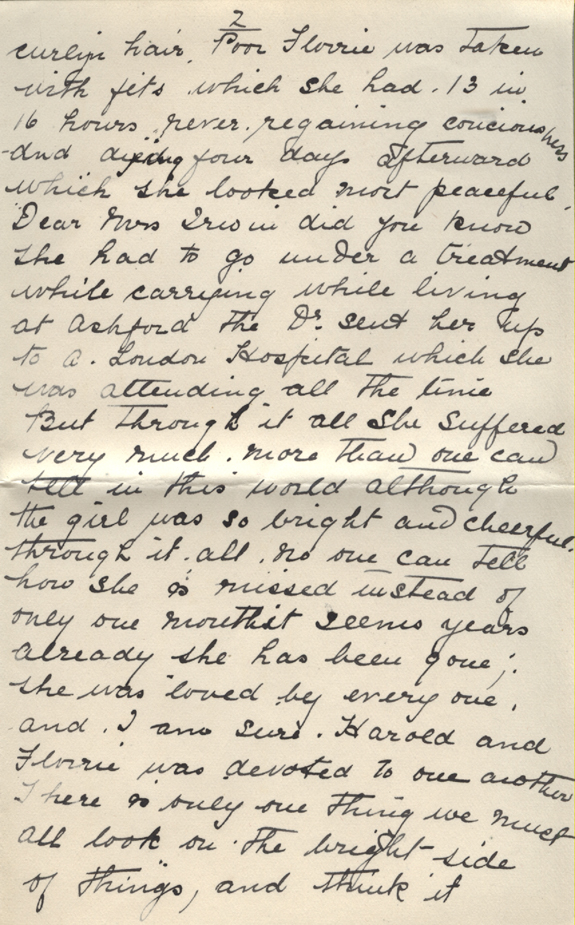 2
curlyn hair. Poor Florrie was taken
with fits which she had. 13 in
16 hours, never. regaining conciousness
and dying four days afterward
which she looked most peaceful.
Dear Mrs Irwin did you know
she had to go under a treatment
while carrying while living
at Ashford the Dr. sent her up
to a. London Hospital which she
was attending all the time
But through it all she suffered
very much. more than one can
tell in this world although
the girl was so bright and cheerful.
through it. all. no one can tell
how she is missed instead of
only one month it seems years
already she has been gone;.
she was loved by every one.
and. I am sure. Harold and
Florrie was devoted to one another
There is only one thing we must
all look on the bright side
of things, and think it